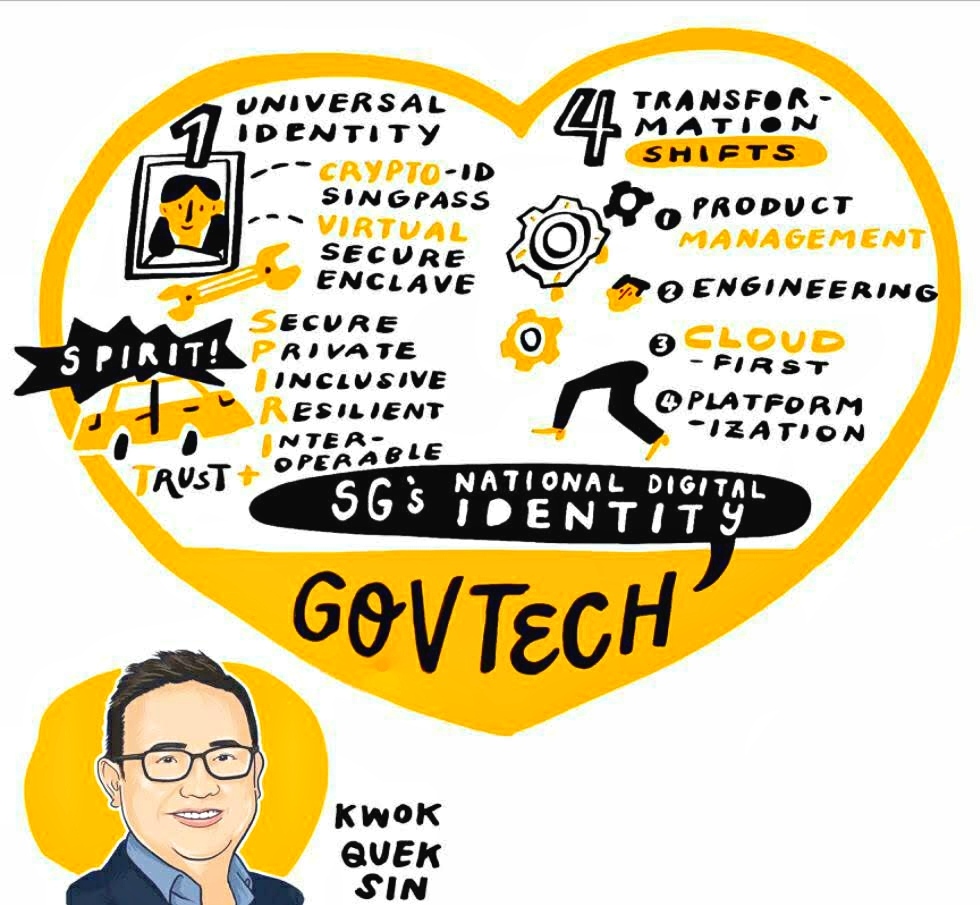 1 UNIVERSAL
IDENTITY
CRYPTO-ID
SINGPASS
VIRTUAL
SECURE
ENCLAVE
SPIRIT!
SECURE
PRIVATE
IINCLUSIVE
RESILIENT
INTER-
OPERABLE
TRUST +
4 TRANSFOR-
MATION
SHIFTS
1 PRODUCT
MANAGEMENT
2 ENGINEERING
3 CLOUD
-FIRST
4 PLATFORM
-IZATION
SG's NATIONAL DIGITAL
IDENTITY
GOVTECH
KWOK
QUEK
SIN